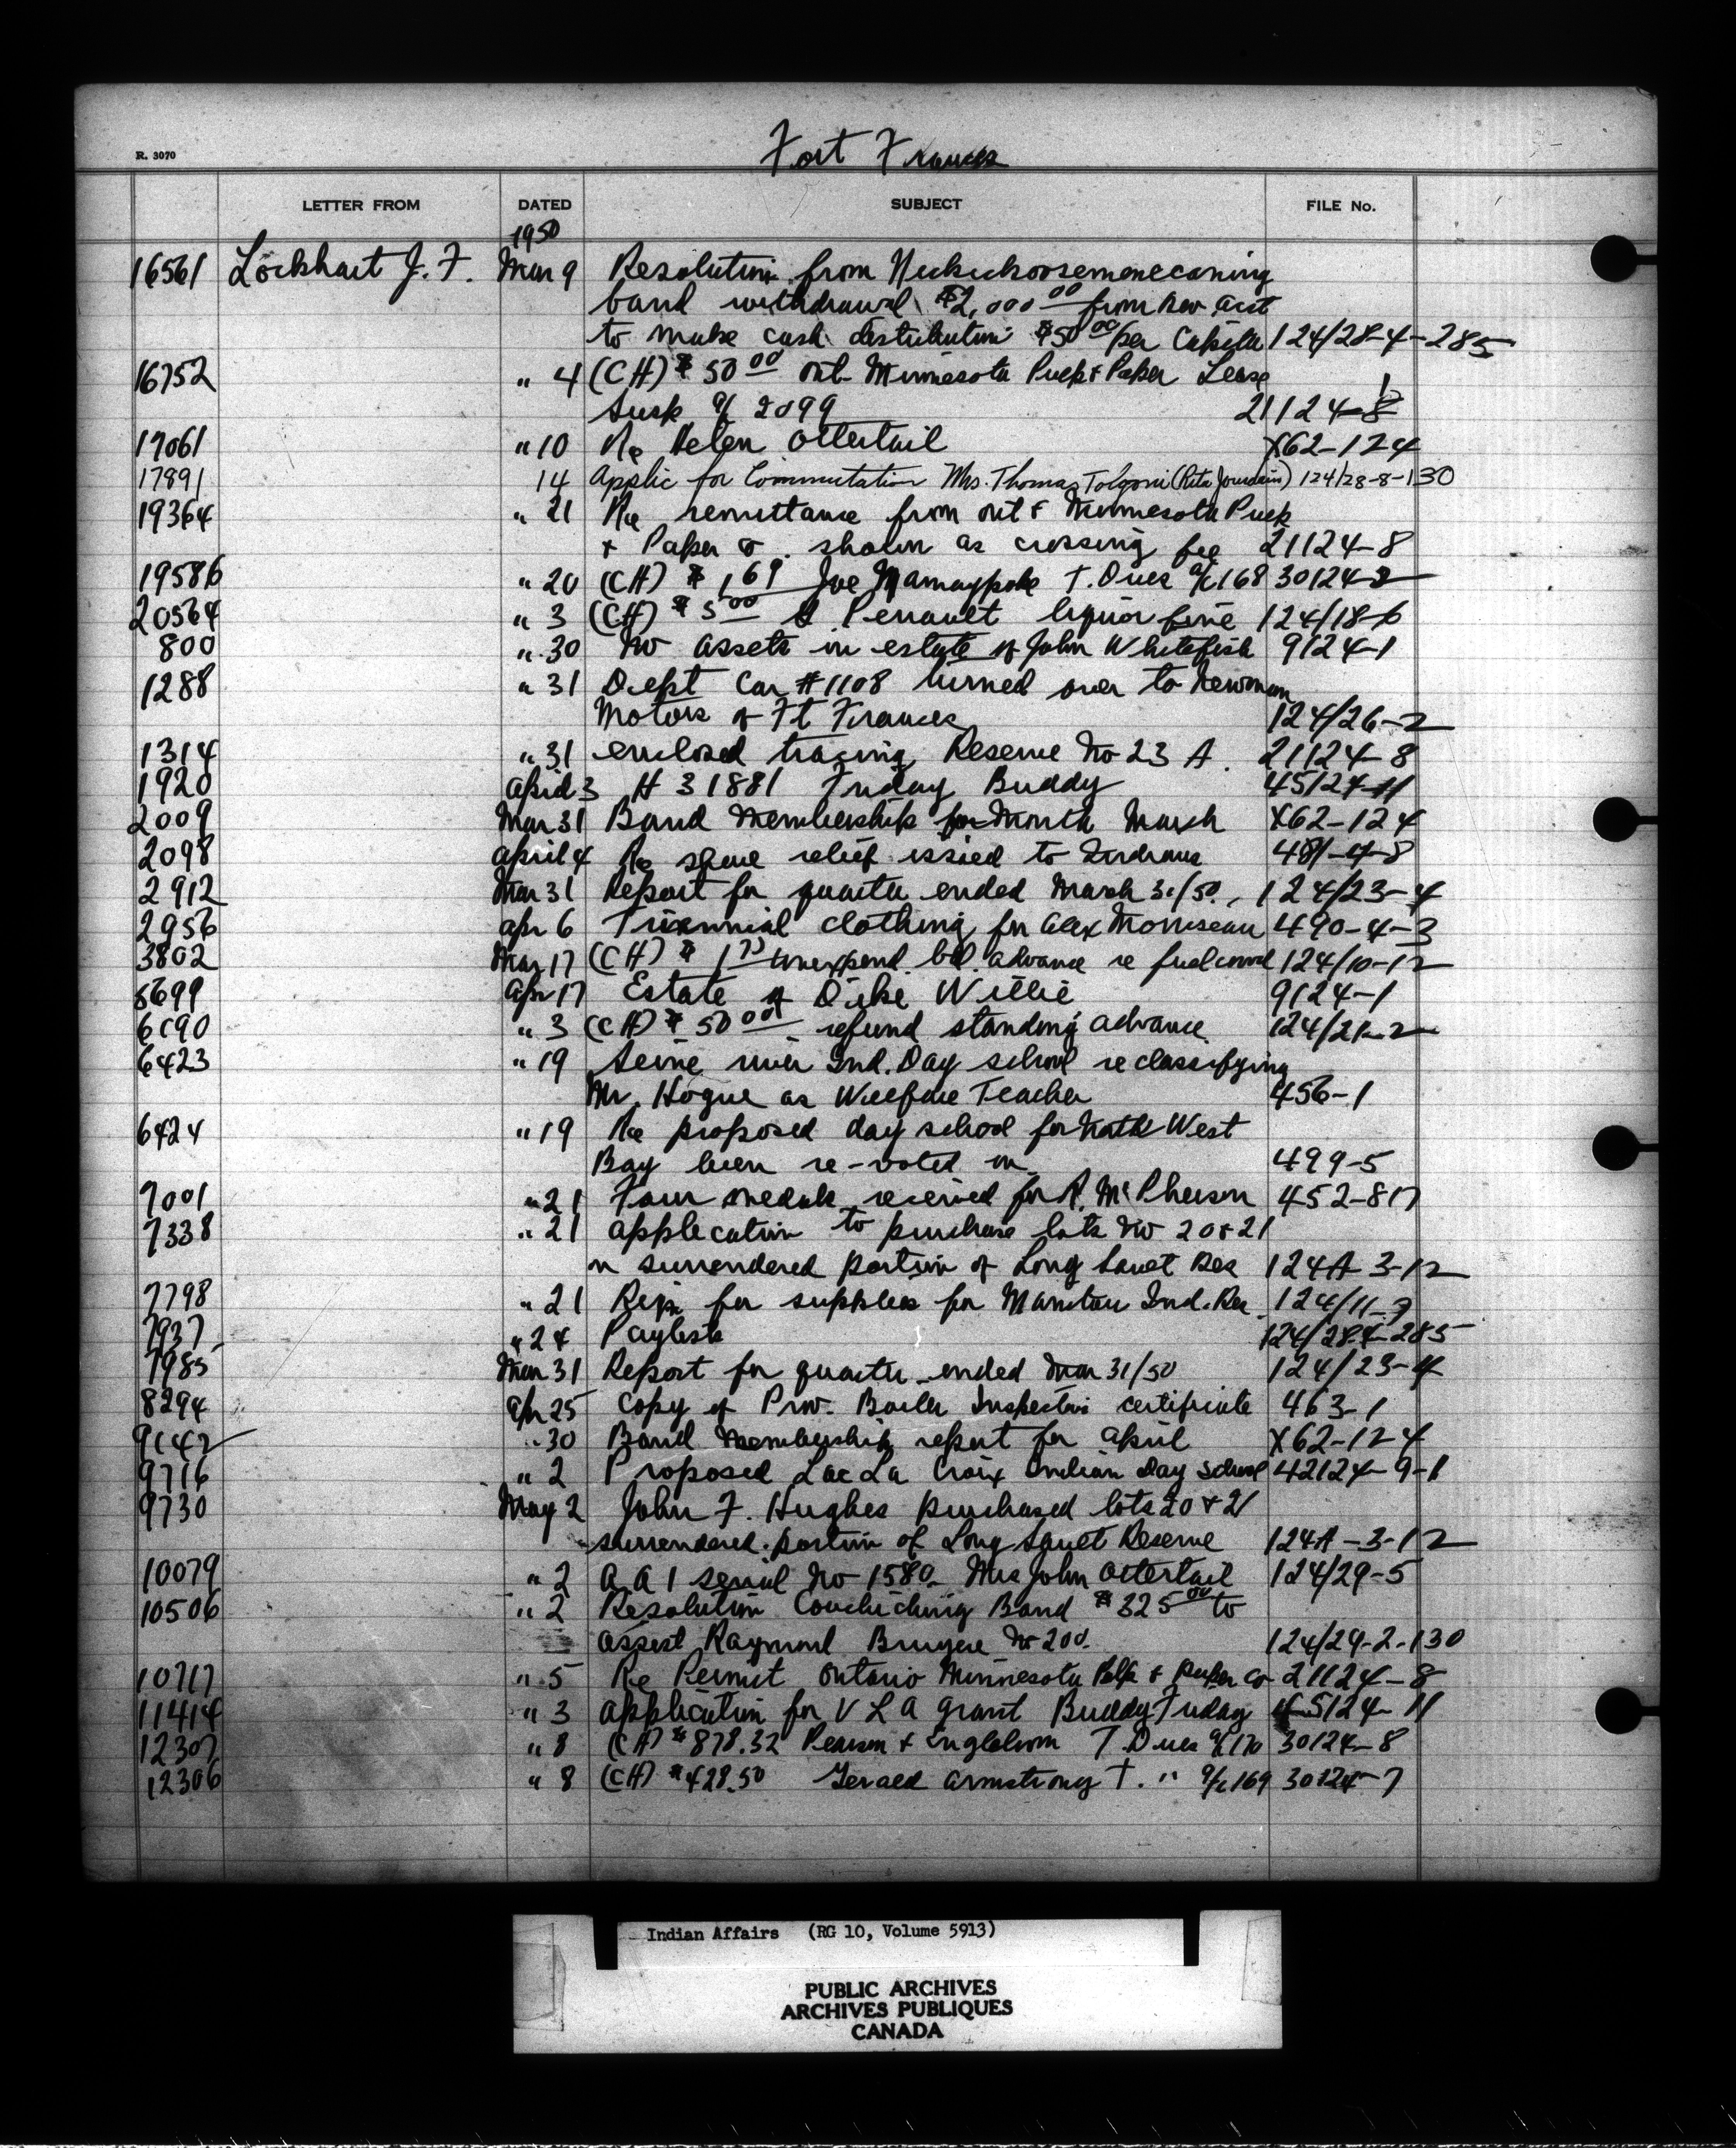 Fort Frances
R. 3070
LETTER FROM DATED SUBJECT FILE No.
1950
16561 Lockhart J. F. Mar 9 Resolution from
band withdrawal $2,000 00 from Rev. acct
to make cash distribution $50 00/per Capita 124/28-4-285
16752 " 4 (CH) $50 00 Ont-Minnesota Pulp & Paper Lease
Susp a/c 2099 21124-8
17061 " 10 Re Helen Ottertail X62-124
17891 14 Applic for Commutation Mrs. Thomas (Rita Jourdain) 124/28-8-130
19364 " 21 Re remittance from Ont & Minnesota Pulp
& Paper Co. shown as crossing fee 21124-8
19586 " 20 (CH) $1.69 Joe Namaypoke T. Dues a/c 168 30124-2
20564 " 3 (CH) $5 00 Perrault liquor fine 124/18-6
800 " 30 No assets in estate of John Whitefish 9124-1
1288 " 31 Dept Car #1108 turned over to Newman
Motors of Ft Frances 124/26-2
1314 " 31 enclosed tracing Reserve No 23 A. 21124-8
1920 April 3 H 31881 Friday Buddy 45124-11
2009 Mar 31 Band Membership for Month March X62-124
2098 April 4 Re relief issued to Indians 481-4-8
2912 Mar 31 Report for quarter ended March 31/50. 124/23-4
2956 Apr 6 Triennial clothing for Alex Morriseau 490-4-3
3802 Mar 17 (CH) $1 75 unexpend. bal. advance re fuelwood 124/10-12
5699 Apr 17 Estate of Willie 9124-1
6090 " 3 (CH) $50 00 refund standing advance 124/21-2
6423 " 19 Seine river Ind. Day school reclassifying
Mr. Hogue as Welfare Teacher 456-1
6424 " 19 Re proposed day school for North West
Bay been re-voted in 499-5
7001 " 21 Four medals received for R. McPherson 452-817
7338 " 21 application to purchase lots No 20 & 21
in surrendered portion of Long Sauet Res 124A-3-12
7798 " 21 Reqn for supplies for Manitou Ind. Res 124/11-7
7937 " 24 Paylists 124/28-4-285
7985 Mar 31 Report for quarter ended Mar 31/50 124/23-4
8294 Apr 25 Copy of Prov. Boiler Inspection certificate 463-1
9142 " 30 Band Membership report for April X62-124
9716 " 2 Proposed Lac La Croix Indian Day School 42124-9-1
9730 May 2 John F. Hughes purchased lots 20 & 21
surrendered portion of Long Sauet Reserve 124A-3-12
10079 " 2 A A 1 serial No 1580 Mrs John Ottertail 124/29-5
10506 " 2 Resolution Couchiching Band $325 00 to
assist Raymond Bruyere No 200. 124/29-2-130
10717 " 5 Re Permit Ontario Minnesota Pulp & Paper Co 21124-8
11414 " 3 application for V L A grant Buddy Friday 45124-11
12307 " 8 (CH) $878.32 Pearson & Engblom T. Dues a/c 170 30124-8
12306 " 8 (CH) $428.50 Gerald Armstrong T. " a/c 169 30124-7
Indian Affairs (RG 10, Volume 5913)
PUBLIC ARCHIVES
ARCHIVES PUBLIQUES
CANADA